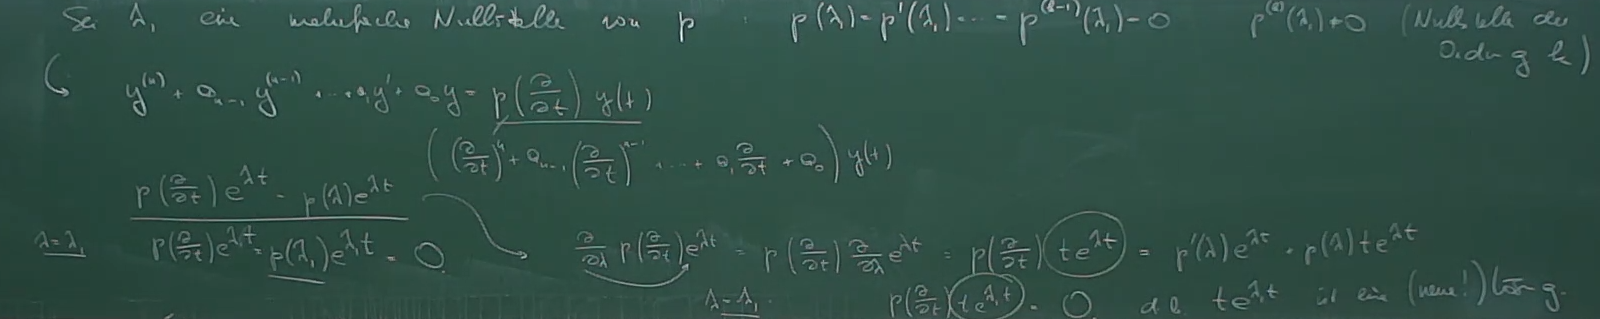 Sei λ₁ eine mehrfache Nullstelle von p : p(λ₁) = p'(λ₁) = ... = p^(k-1)(λ₁) = 0 p^(k)(λ₁) ≠ 0 (Nullstelle der
Ordnung k)
y^(n) + a_{n-1} y^(n-1) + ... + a₁y' + a₀y = p(∂/∂t) y(t)
((∂/∂t)^n + a_{n-1} (∂/∂t)^{n-1} + ... + a₁ ∂/∂t + a₀) y(t)
p(∂/∂t) e^{λt} = p(λ) e^{λt}
λ = λ₁ p(∂/∂t) e^{λ₁t} = p(λ₁) e^{λ₁t} = 0
∂/∂λ p(∂/∂t) e^{λt} = p(∂/∂t) ∂/∂λ e^{λt} = p(∂/∂t) (t e^{λt}) = p'(λ) e^{λt} + p(λ) t e^{λt}
λ = λ₁ p(∂/∂t) (t e^{λ₁t}) = 0 d.h. t e^{λ₁t} ist eine (neue!) Lösung.